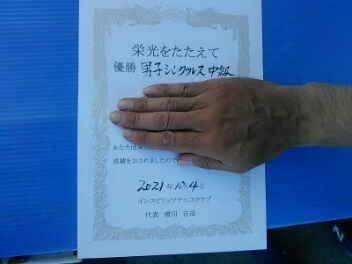 栄光をたたえて
優勝 男子シングルス 中級
あなたは
成績をおさめましたので
2021年10月4日
インスピリッツテニスクラブ
代表 増田 吉彦